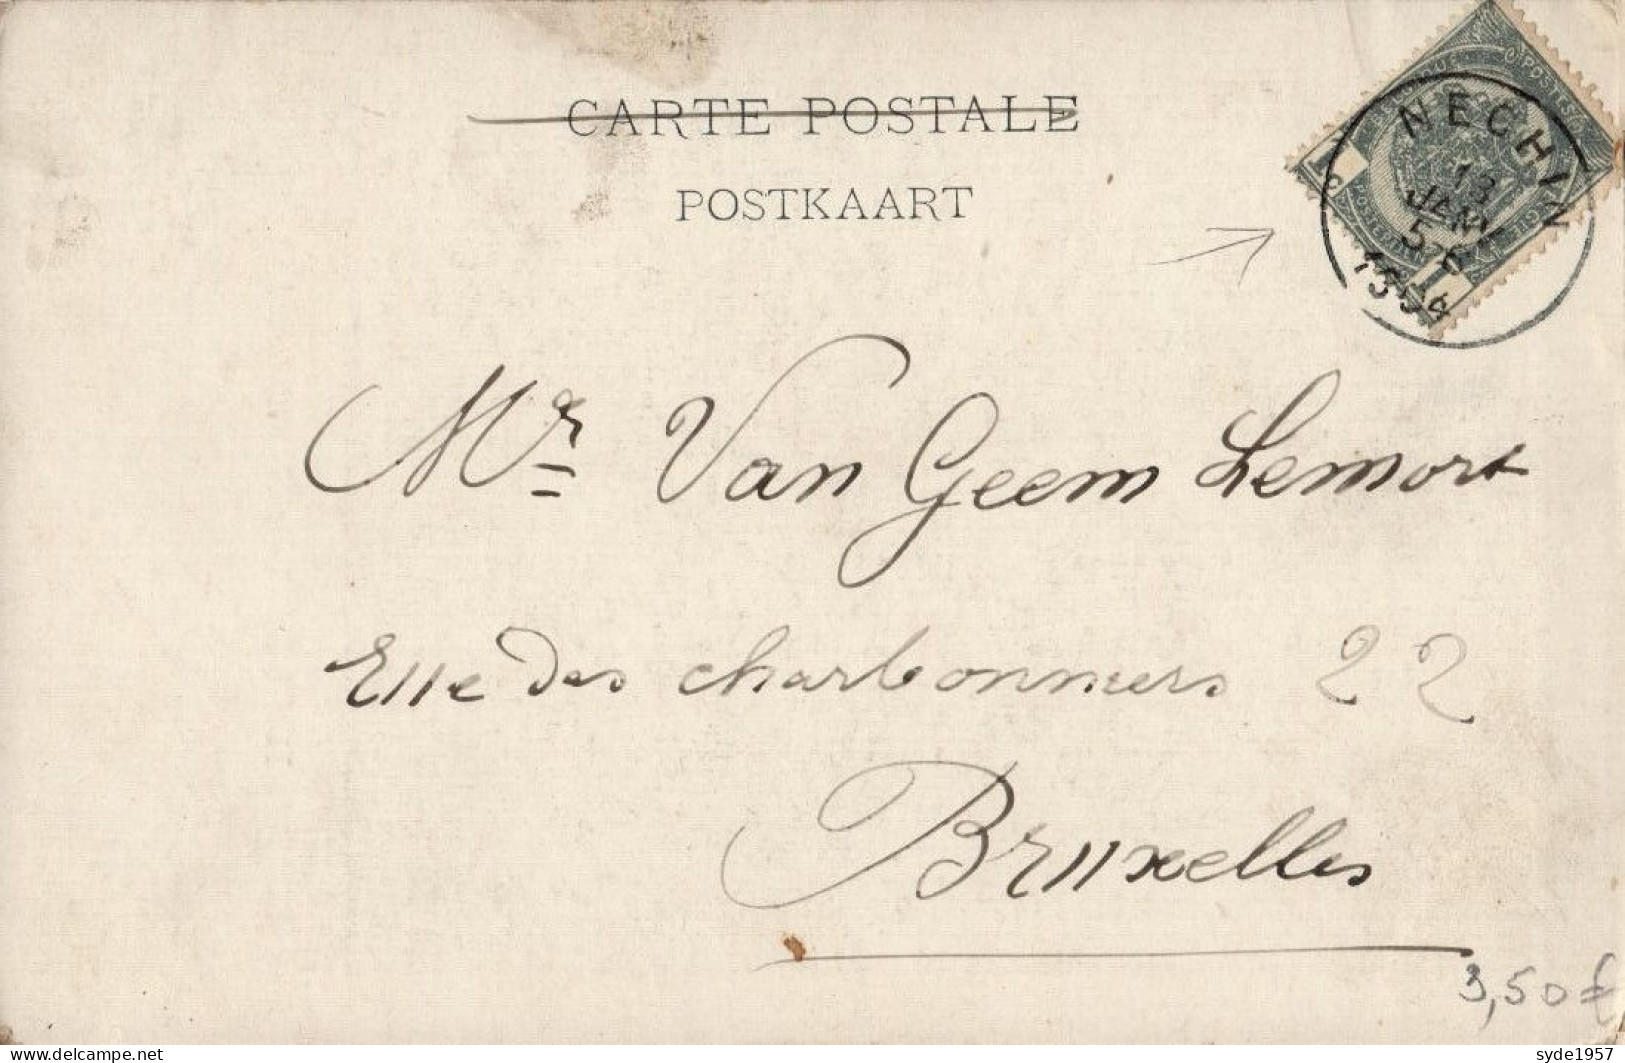 CARTE POSTALE
POSTKAART
NECHIN
13
JANV
5-6
1904
1 c 1
Mr Van Geem Lemort
Rue des charbonniers 22
Bruxelles
3,50 €
delcampe.net
syde1957